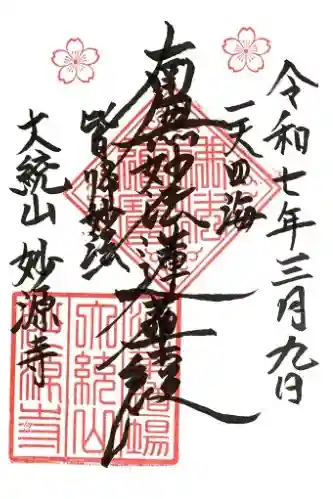 令和七年三月九日
一天四海
南無妙法蓮華経
皆帰妙法
大統山 妙源寺
大統山